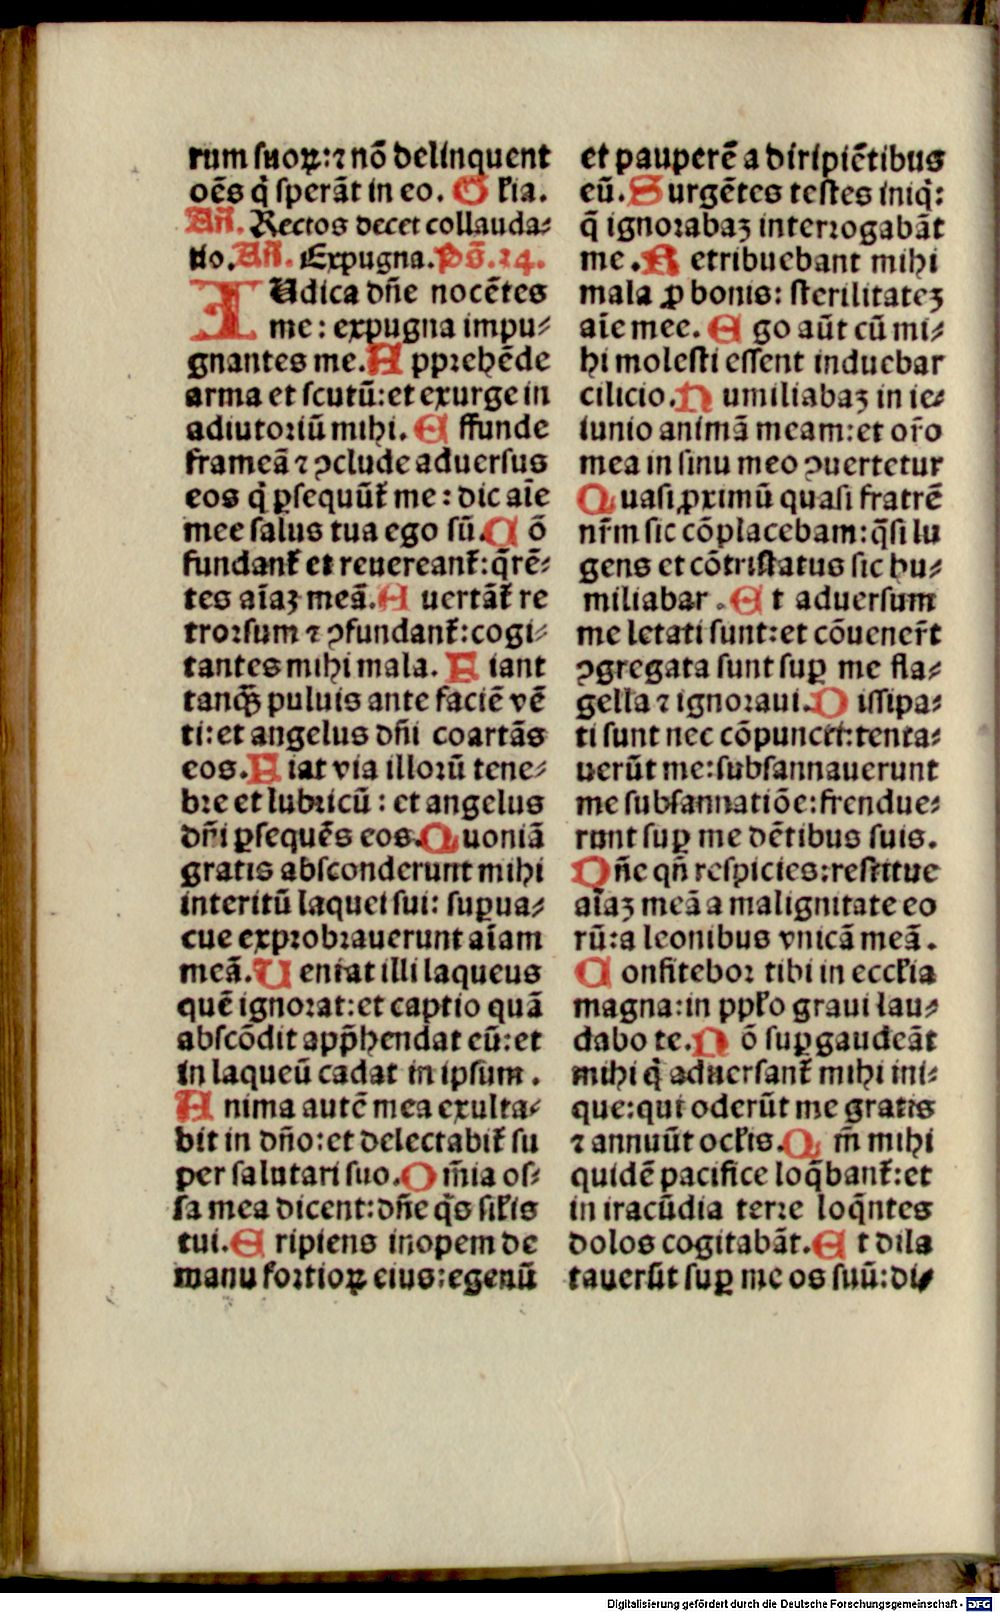 rum suoꝝ: ⁊ nō delinquent
oēs q̇ sperāt in eo. G ƚia.
Añ. Rectos decet collauda⸗
tio. Añ. Expugna. Pṡ. 34.
IUdica dñe nocētes
me: expugna impu⸗
gnantes me. A pprehēde
arma et scutū: et exurge in
adiutoriū mihi. E ffunde
frameā ⁊ ꝯclude aduersus
eos q̇ ꝑsequūt᷑ me: dic aīe
mee salus tua ego sū. C ō
fundant᷑ et reuereant᷑: q̄rē⸗
tes aīaꝫ meā. A uertāt᷑ re
trorsum ⁊ ꝯfundant᷑: cogi⸗
tantes mihi mala. F iant
tanqꝫ puluis ante faciē vē
ti: et angelus dñi coartās
eos. F iat via illorū tene⸗
bre et lubricū: et angelus
dñi ꝑsequēs eos. Quoniā
gratis absconderunt mihi
interitū laquei sui: suꝑua⸗
cue exprobrauerunt aīam
meā. U eniat illi laqueus
quē ignorat: et captio quā
abscōdit app̄hendat eū: et
in laqueū cadat in ipsum.
A nima autē mea exulta⸗
bit in dño: et delectabit᷑ su
per salutari suo. O m̄ia os⸗
sa mea dicent: dñe q̇s siƚis
tui. E ripiens inopem de
manu fortioꝝ eius: egenū
et pauperē a diripiētibus
eū. Surgētes testes iniq̇:
q̄ ignorabaꝫ interrogabāt
me. R etribuebant mihi
mala ꝓ bonis: sterilitateꝫ
aīe mee. E go aūt cū mi⸗
hi molesti essent induebar
cilicio. H umiliabaꝫ in ie⸗
iunio animā meam: et or̄o
mea in sinu meo ꝯuertetur
Quasi ꝓximū quasi fratrē
nr̄m sic cōplacebam: q̄si lu
gens et cōtristatus sic hu⸗
miliabar. E t aduersum
me letati sunt: et cōuener̄t
ꝯgregata sunt suꝑ me fla⸗
gella ⁊ ignoraui. D issipa⸗
ti sunt nec cōpuncti: tenta⸗
uerūt me: subsannauerunt
me subsannatiōe: frendue⸗
runt suꝑ me dētibus suis.
Dñe qñ respicies: restitue
aīaꝫ meā a malignitate eo
rū: a leonibus vnicā meā.
C onfitebor tibi in eccƚia
magna: in ppƚo graui lau⸗
dabo te. N ō suꝑgaudeāt
mihi q̇ aduersant᷑ mihi ini⸗
que: qui oderūt me gratis
⁊ annuūt ocƚis. Q m̄ mihi
quidē pacifice loq̄bant᷑: et
in iracūdia terre loq̄ntes
dolos cogitabāt. E t dila
tauerūt suꝑ me os suū: di⸗
Digitalisierung gefördert durch die Deutsche Forschungsgemeinschaft - DFG